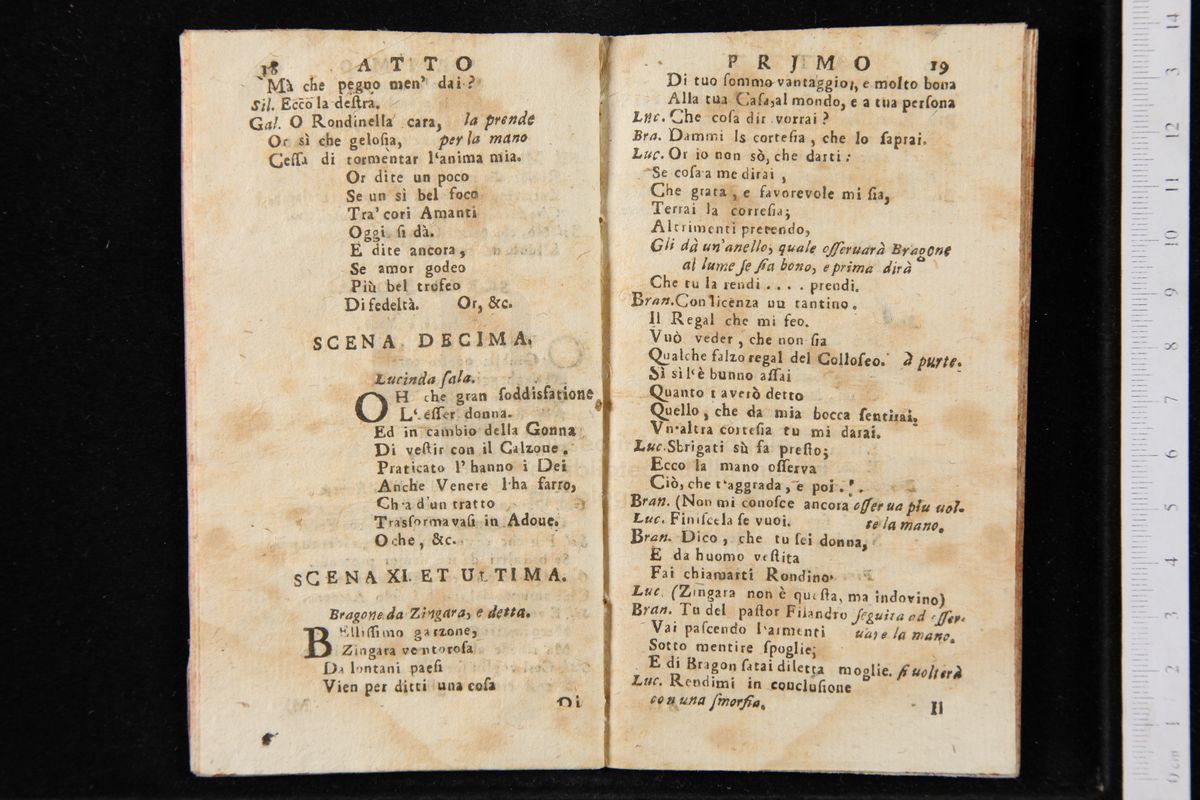 18 ATTO
Mà che pegno men' dai?
Sil. Ecco la destra.
Gal. O Rondinella cara, la prende
Or sì che gelosia, per la mano
Cessa di tormentar l'anima mia.
Or dite un poco
Se un sì bel foco
Tra' cori Amanti
Oggi si dà.
E dite ancora,
Se amor godeo
Più bel trofeo
Di fedeltà. Or, &c.
SCENA DECIMA.
Lucinda sala.
OH che gran soddisfatione
L'esser donna.
Ed in cambio della Gonna
Di vestir con il Calzone.
Praticato l'hanno i Dei
Anche Venere l'ha farro,
Ch'a d'un tratto
Trasformavasi in Adoue.
O che, &c.
SCENA XI. ET ULTIMA.
Bragone da Zingara, e detta.
BEllissimo garzone,
Zingara ventorosa
Da lontani paesi
Vien per ditti una cosa
Di
PRJMO 19
Di tuo sommo vantaggio, e molto bona
Alla tua Casa, al mondo, e a tua persona
Luc. Che cosa dir vorrai?
Bra. Dammi ls cortesia, che lo saprai.
Luc. Or io non sò, che darti:
Se cosa a me dirai,
Che grata, e favorevole mi sia,
Terrai la correſia;
Altrimenti pretendo,
Gli dà un'anello, quale osseruarà Bragone
al lume se sia bono, e prima dirà
Che tu la rendi .... prendi.
Bran. Con licenza un tantino.
Il Regal che mi feo.
Vuò veder, che non sia
Qualche falzo regal del Colloseo. à parte.
Sì sì l'è bunno assai
Quanto t averò detto
Quello, che da mia bocca sentirai,
Vn'altra cortesia tu mi darai.
Luc. Sbrigati sù fa presto;
Ecco la mano osserva
Ciò, che t'aggrada, e poi . . .
Bran. (Non mi conosce ancora osser ua più uol-
Luc. Finiscela se vuoi. te la mano.
Bran. Dico, che tu sei donna,
E da huomo vestita
Fai chiamarti Rondino
Luc. (Zingara non è questa, ma indovino)
Bran. Tu del pastor Filandro seguita ad osser-
Vai pascendo l'armenti uare la mano.
Sotto mentire spoglie;
E di Bragon satai diletta moglie. si uolterà
Luc. Rendimi in conclusione
con una smorfia.
Il